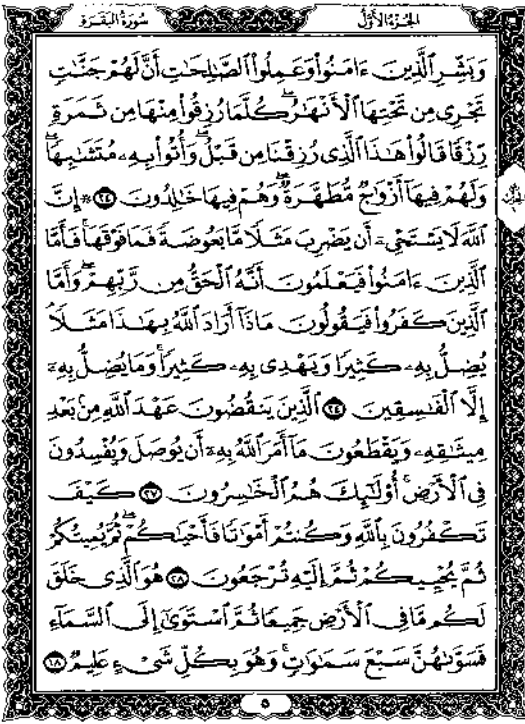 الجُزءُ الأَوَّلُ
سُورَةُ البَقَرَةِ
وَبَشِّرِ ٱلَّذِينَ ءَامَنُوا۟ وَعَمِلُوا۟ ٱلصَّـٰلِحَـٰتِ أَنَّ لَهُمْ جَنَّـٰتٍ
تَجْرِى مِن تَحْتِهَا ٱلْأَنْهَـٰرُ ۖ كُلَّمَا رُزِقُوا۟ مِنْهَا مِن ثَمَرَةٍ
رِّزْقًا قَالُوا۟ هَـٰذَا ٱلَّذِى رُزِقْنَا مِن قَبْلُ ۖ وَأُتُوا۟ بِهِۦ مُتَشَـٰبِهًا ۖ
وَلَهُمْ فِيهَآ أَزْوَٰجٌ مُّطَهَّرَةٌ ۖ وَهُمْ فِيهَا خَـٰلِدُونَ ۞ إِنَّ
ٱللَّهَ لَا يَسْتَحْىِۦٓ أَن يَضْرِبَ مَثَلًا مَّا بَعُوضَةً فَمَا فَوْقَهَا ۚ فَأَمَّا
ٱلَّذِينَ ءَامَنُوا۟ فَيَعْلَمُونَ أَنَّهُ ٱلْحَقُّ مِن رَّبِّهِمْ ۖ وَأَمَّا
ٱلَّذِينَ كَفَرُوا۟ فَيَقُولُونَ مَاذَآ أَرَادَ ٱللَّهُ بِهَـٰذَا مَثَلًا ۘ
يُضِلُّ بِهِۦ كَثِيرًا وَيَهْدِى بِهِۦ كَثِيرًا ۚ وَمَا يُضِلُّ بِهِۦٓ
إِلَّا ٱلْفَـٰسِقِينَ ٱلَّذِينَ يَنقُضُونَ عَهْدَ ٱللَّهِ مِنۢ بَعْدِ
مِيثَـٰقِهِۦ وَيَقْطَعُونَ مَآ أَمَرَ ٱللَّهُ بِهِۦٓ أَن يُوصَلَ وَيُفْسِدُونَ
فِى ٱلْأَرْضِ ۚ أُو۟لَـٰٓئِكَ هُمُ ٱلْخَـٰسِرُونَ ٢٧ كَيْفَ
تَكْفُرُونَ بِٱللَّهِ وَكُنتُمْ أَمْوَٰتًا فَأَحْيَـٰكُمْ ۖ ثُمَّ يُمِيتُكُمْ
ثُمَّ يُحْيِيكُمْ ثُمَّ إِلَيْهِ تُرْجَعُونَ ٢٨ هُوَ ٱلَّذِى خَلَقَ
لَكُم مَّا فِى ٱلْأَرْضِ جَمِيعًا ثُمَّ ٱسْتَوَىٰٓ إِلَى ٱلسَّمَآءِ
فَسَوَّىٰهُنَّ سَبْعَ سَمَـٰوَٰتٍ ۚ وَهُوَ بِكُلِّ شَىْءٍ عَلِيمٌ
٥